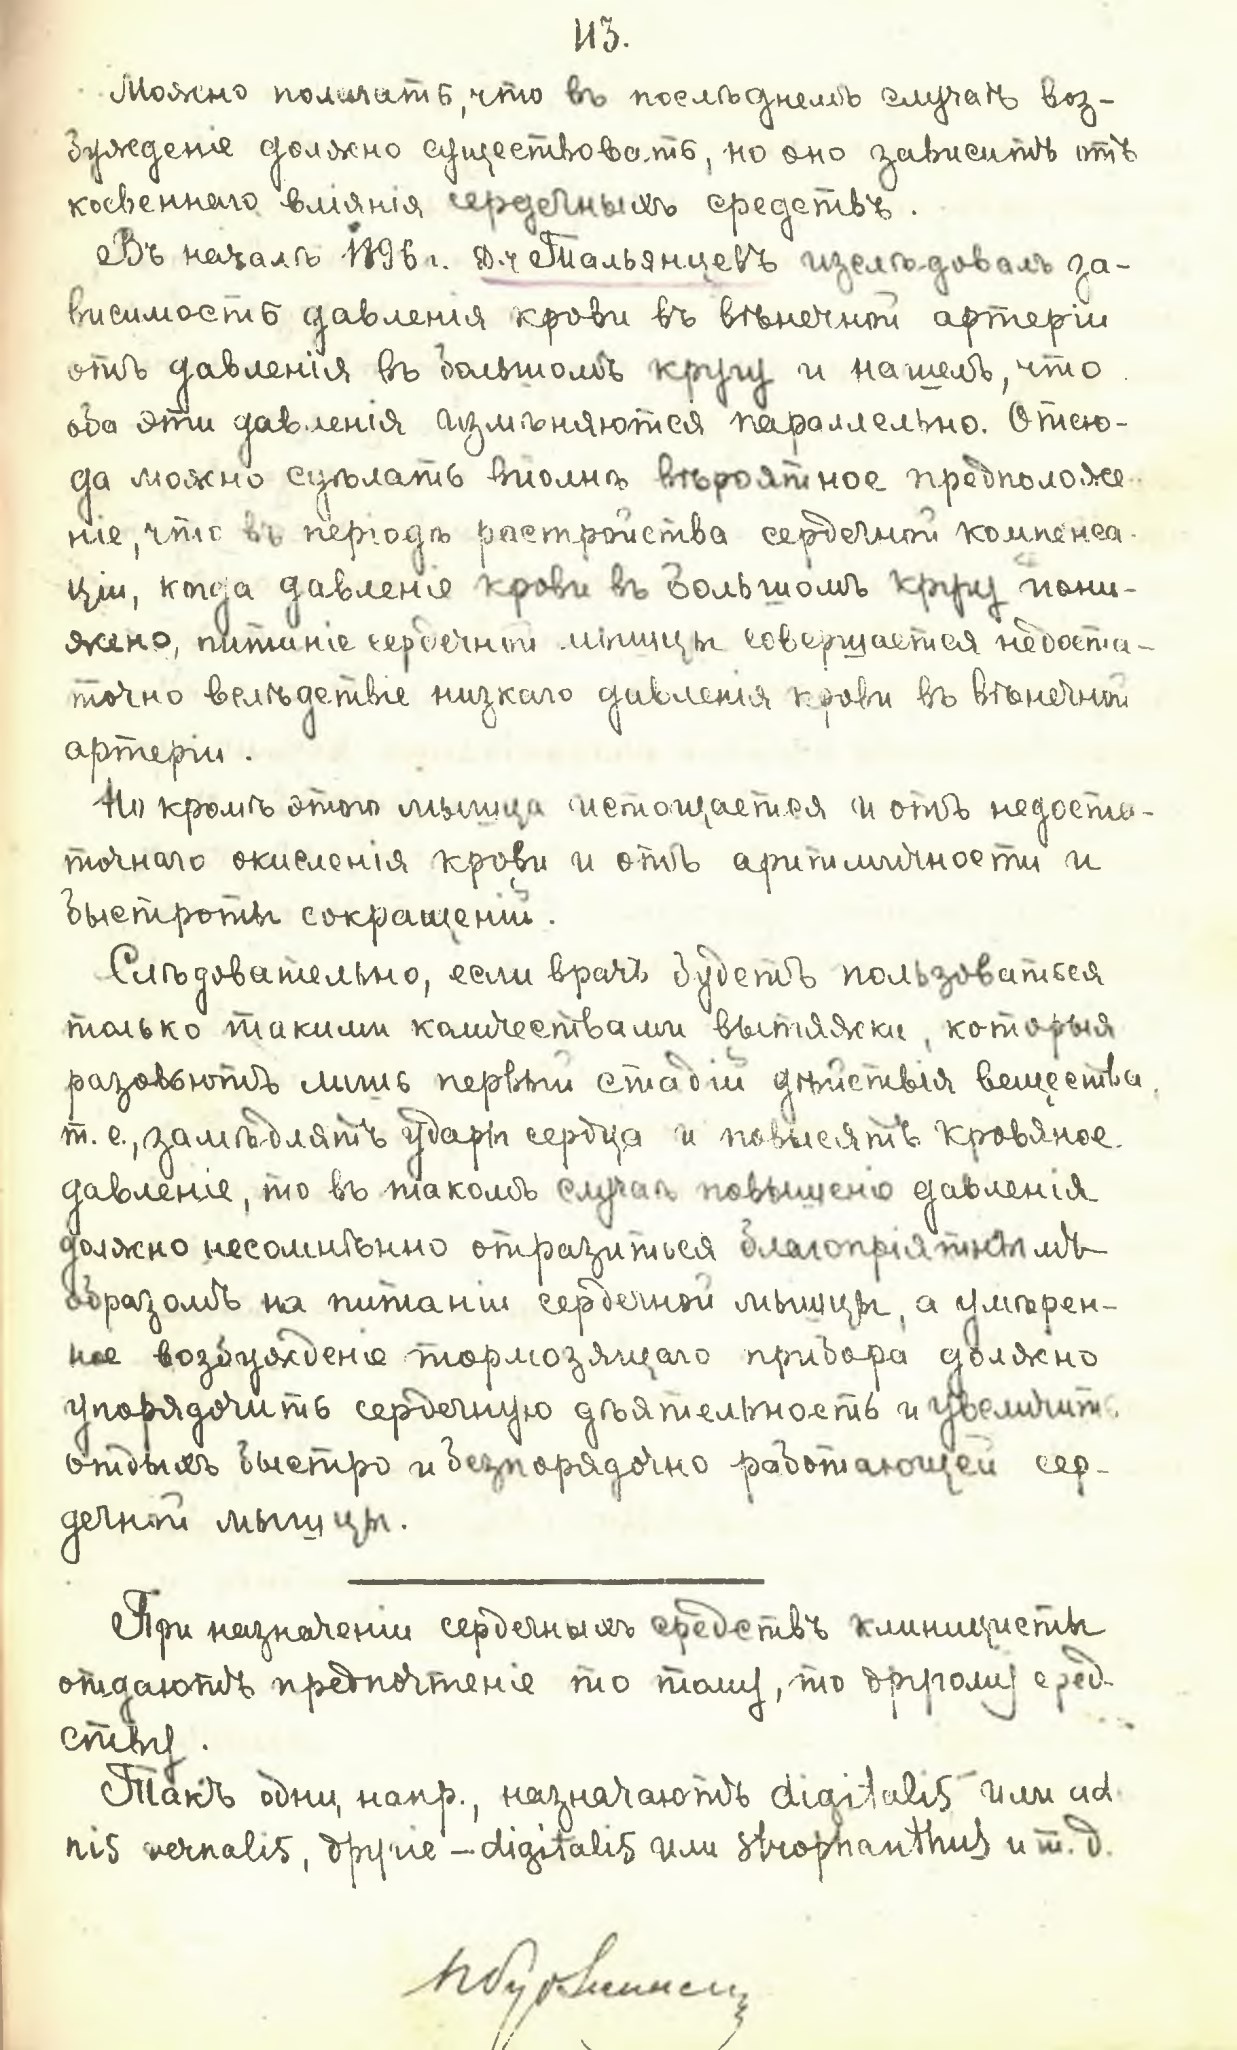 113.
Можно полагать, что въ послѣднемъ случаѣ воз-
бужденіе должно существовать, но оно зависитъ отъ
косвеннаго вліянія сердечныхъ средствъ.
Въ началѣ 1896 г. Д-ч Тальянцевъ изслѣдовалъ за-
висимость давленія крови въ вѣнечной артеріи
отъ давленія въ большомъ кругу и нашелъ, что
оба эти давленія измѣняются параллельно. Отсю-
да можно сдѣлать вполнѣ вѣроятное предположе-
ніе, что въ періодъ растройства сердечной компенса-
ціи, когда давленіе крови въ большомъ кругу пони-
жено, питаніе сердечной мышцы совершается недоста-
точно вслѣдствіе низкаго давленія крови въ вѣнечной
артеріи.
Но кромѣ этого мышца истощается и отъ недоста-
точнаго окисленія крови и отъ аритмичности и
быстроты сокращеній.
Слѣдовательно, если врачъ будетъ пользоваться
только такими количествами вытяжки, которыя
разовьютъ лишь первый стадій дѣйствія вещества,
т. е., замѣдлятъ удары сердца и повысятъ кровяное
давленіе, то въ такомъ случаѣ повышеніе давленія
должно несомнѣнно отразиться благопріятнымъ
образомъ на питаніи сердечной мышцы, а умѣрен-
ное возбужденіе тормозящаго прибора должно
упорядочить сердечную дѣятельность и увеличить
отдыхъ быстро и безпорядочно работающей сер-
дечной мышцы.
При назначеніи сердечныхъ средствъ клиницисты
отдаютъ предпочтеніе то тому, то другому сред-
ству.
Такъ одни, напр., назначаютъ digitalis или ado
nis vernalis, другіе — digitalis или strophanthus и т. д.